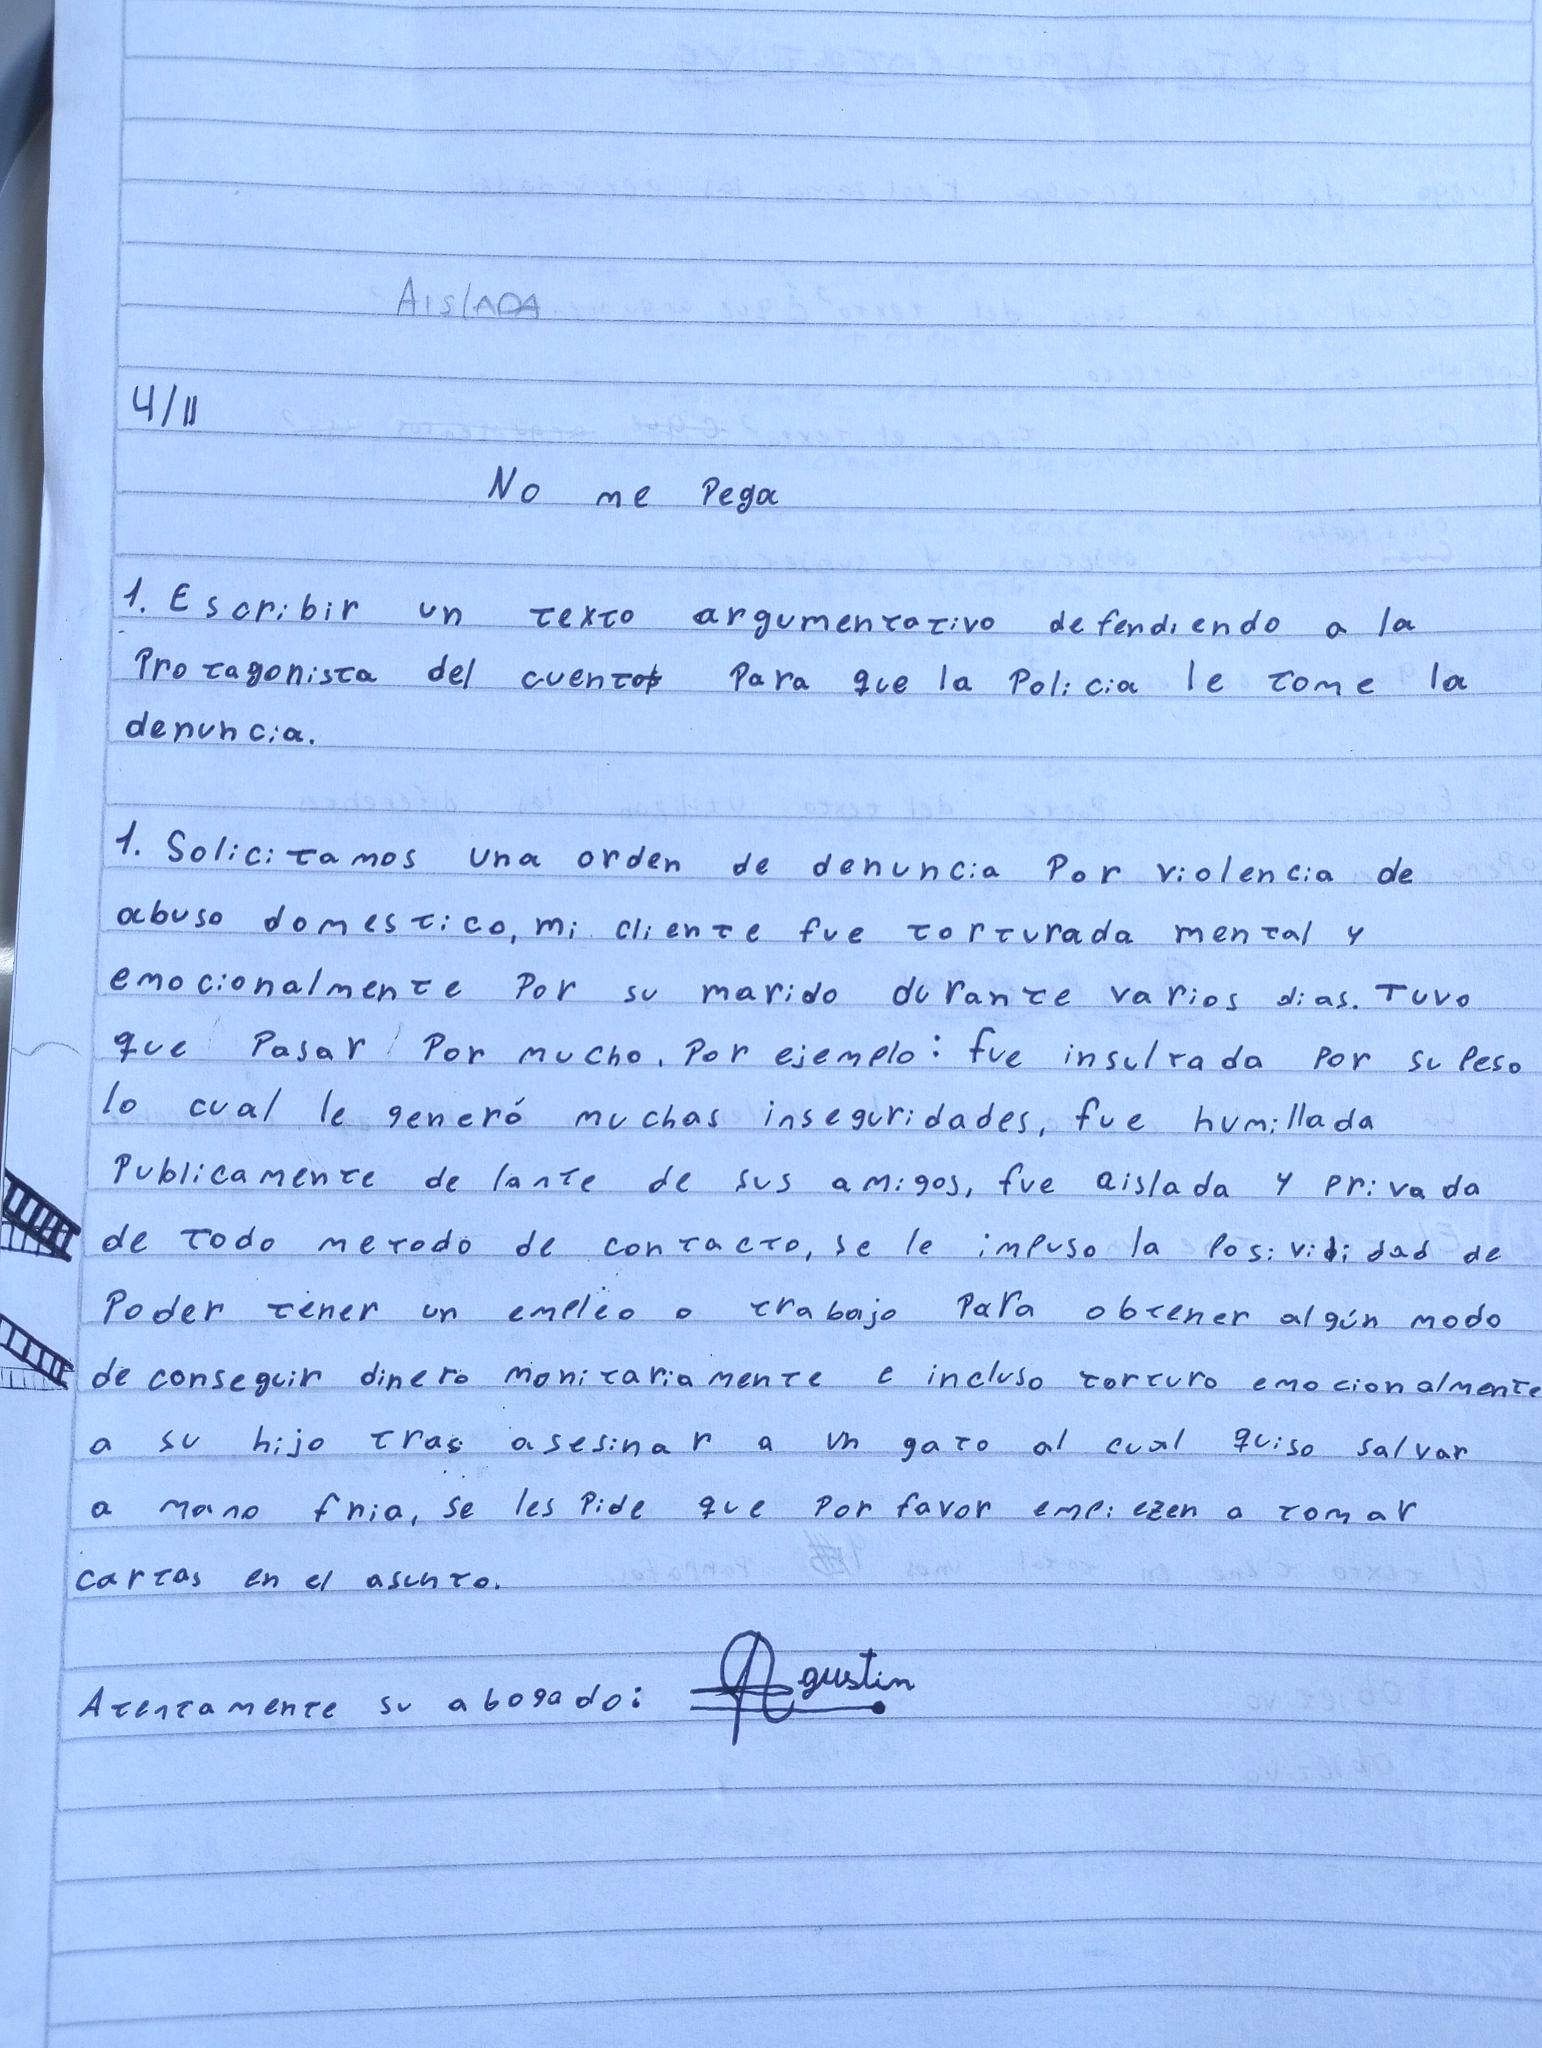 AISLADA
4/11
No me Pega
1. Escribir un texto argumentativo defendiendo a la
Protagonista del cuento Para que la Policia le tome la
denuncia.
1. Solicitamos una orden de denuncia Por violencia de
abuso domestico, mi cliente fue torturada mental y
emocionalmente Por su marido durante varios dias. Tuvo
que Pasar Por mucho. Por ejemplo: fue insultada Por su Peso
lo cual le generó muchas inseguridades, fue humillada
Publicamente delante de sus amigos, fue aislada y privada
de todo metodo de contacto, se le impuso la Posivididad de
Poder tener un empleo o trabajo Para obtener algún modo
de conseguir dinero monitariamente e incluso torturo emocionalmente
a su hijo tras asesinar a un gato al cual quiso salvar
a mano fria, se les Pide que Por favor empiezen a tomar
cartas en el asunto.
Atentamente su abogado: Agustin